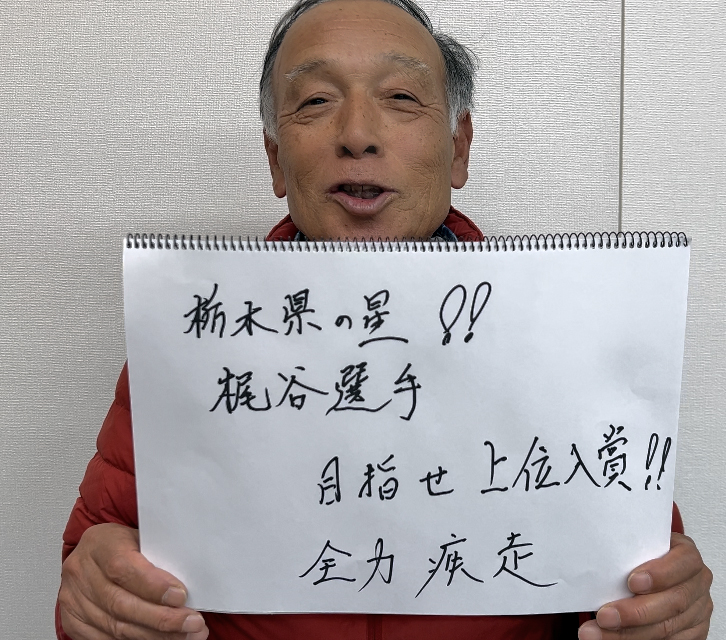 栃木県の星!!
梶谷選手
目指せ 上位入賞!!
全力疾走